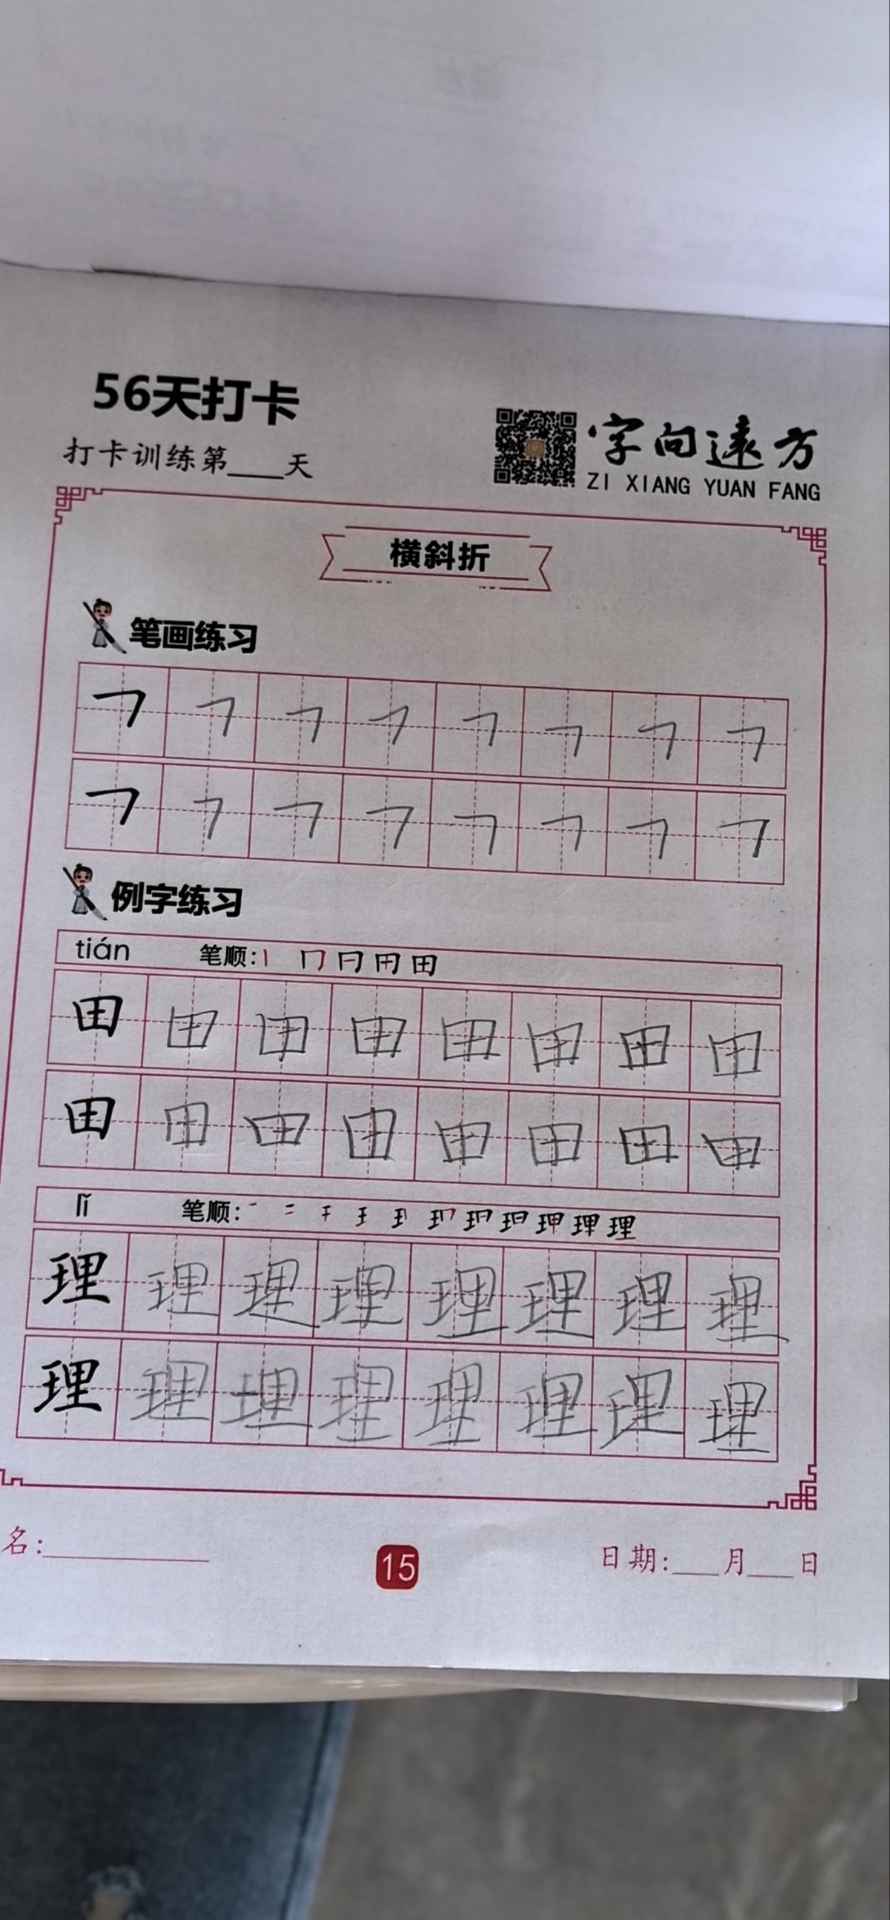 56天打卡
打卡训练第___天
字向远方
ZI XIANG YUAN FANG
横斜折
笔画练习
㇕ ㇕ ㇕ ㇕ ㇕ ㇕ ㇕ ㇕
㇕ ㇕ ㇕ ㇕ ㇕ ㇕ ㇕ ㇕
例字练习
tián 笔顺:
田 田 田 田 田 田 田 田
田 田 田 田 田 田 田 田
lǐ 笔顺:
理 理 理 理 理 理 理 理
理 理 理 理 理 理 理 理
名:
15
日期:___月___日